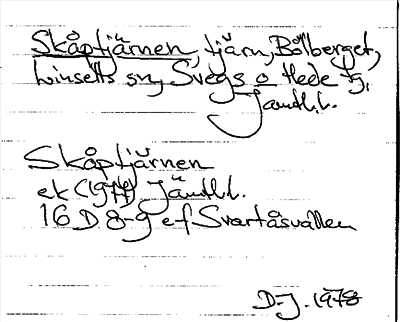 Skåptjärnen, tjärn, Bölberget,
Linsells sn, Svegs o Hede tg,
Jämtl.l.
Skåptjärnen
ek (1974) Jämtl.l.
16 D 8-9 ef Svartåsvallen
D-J. 1978